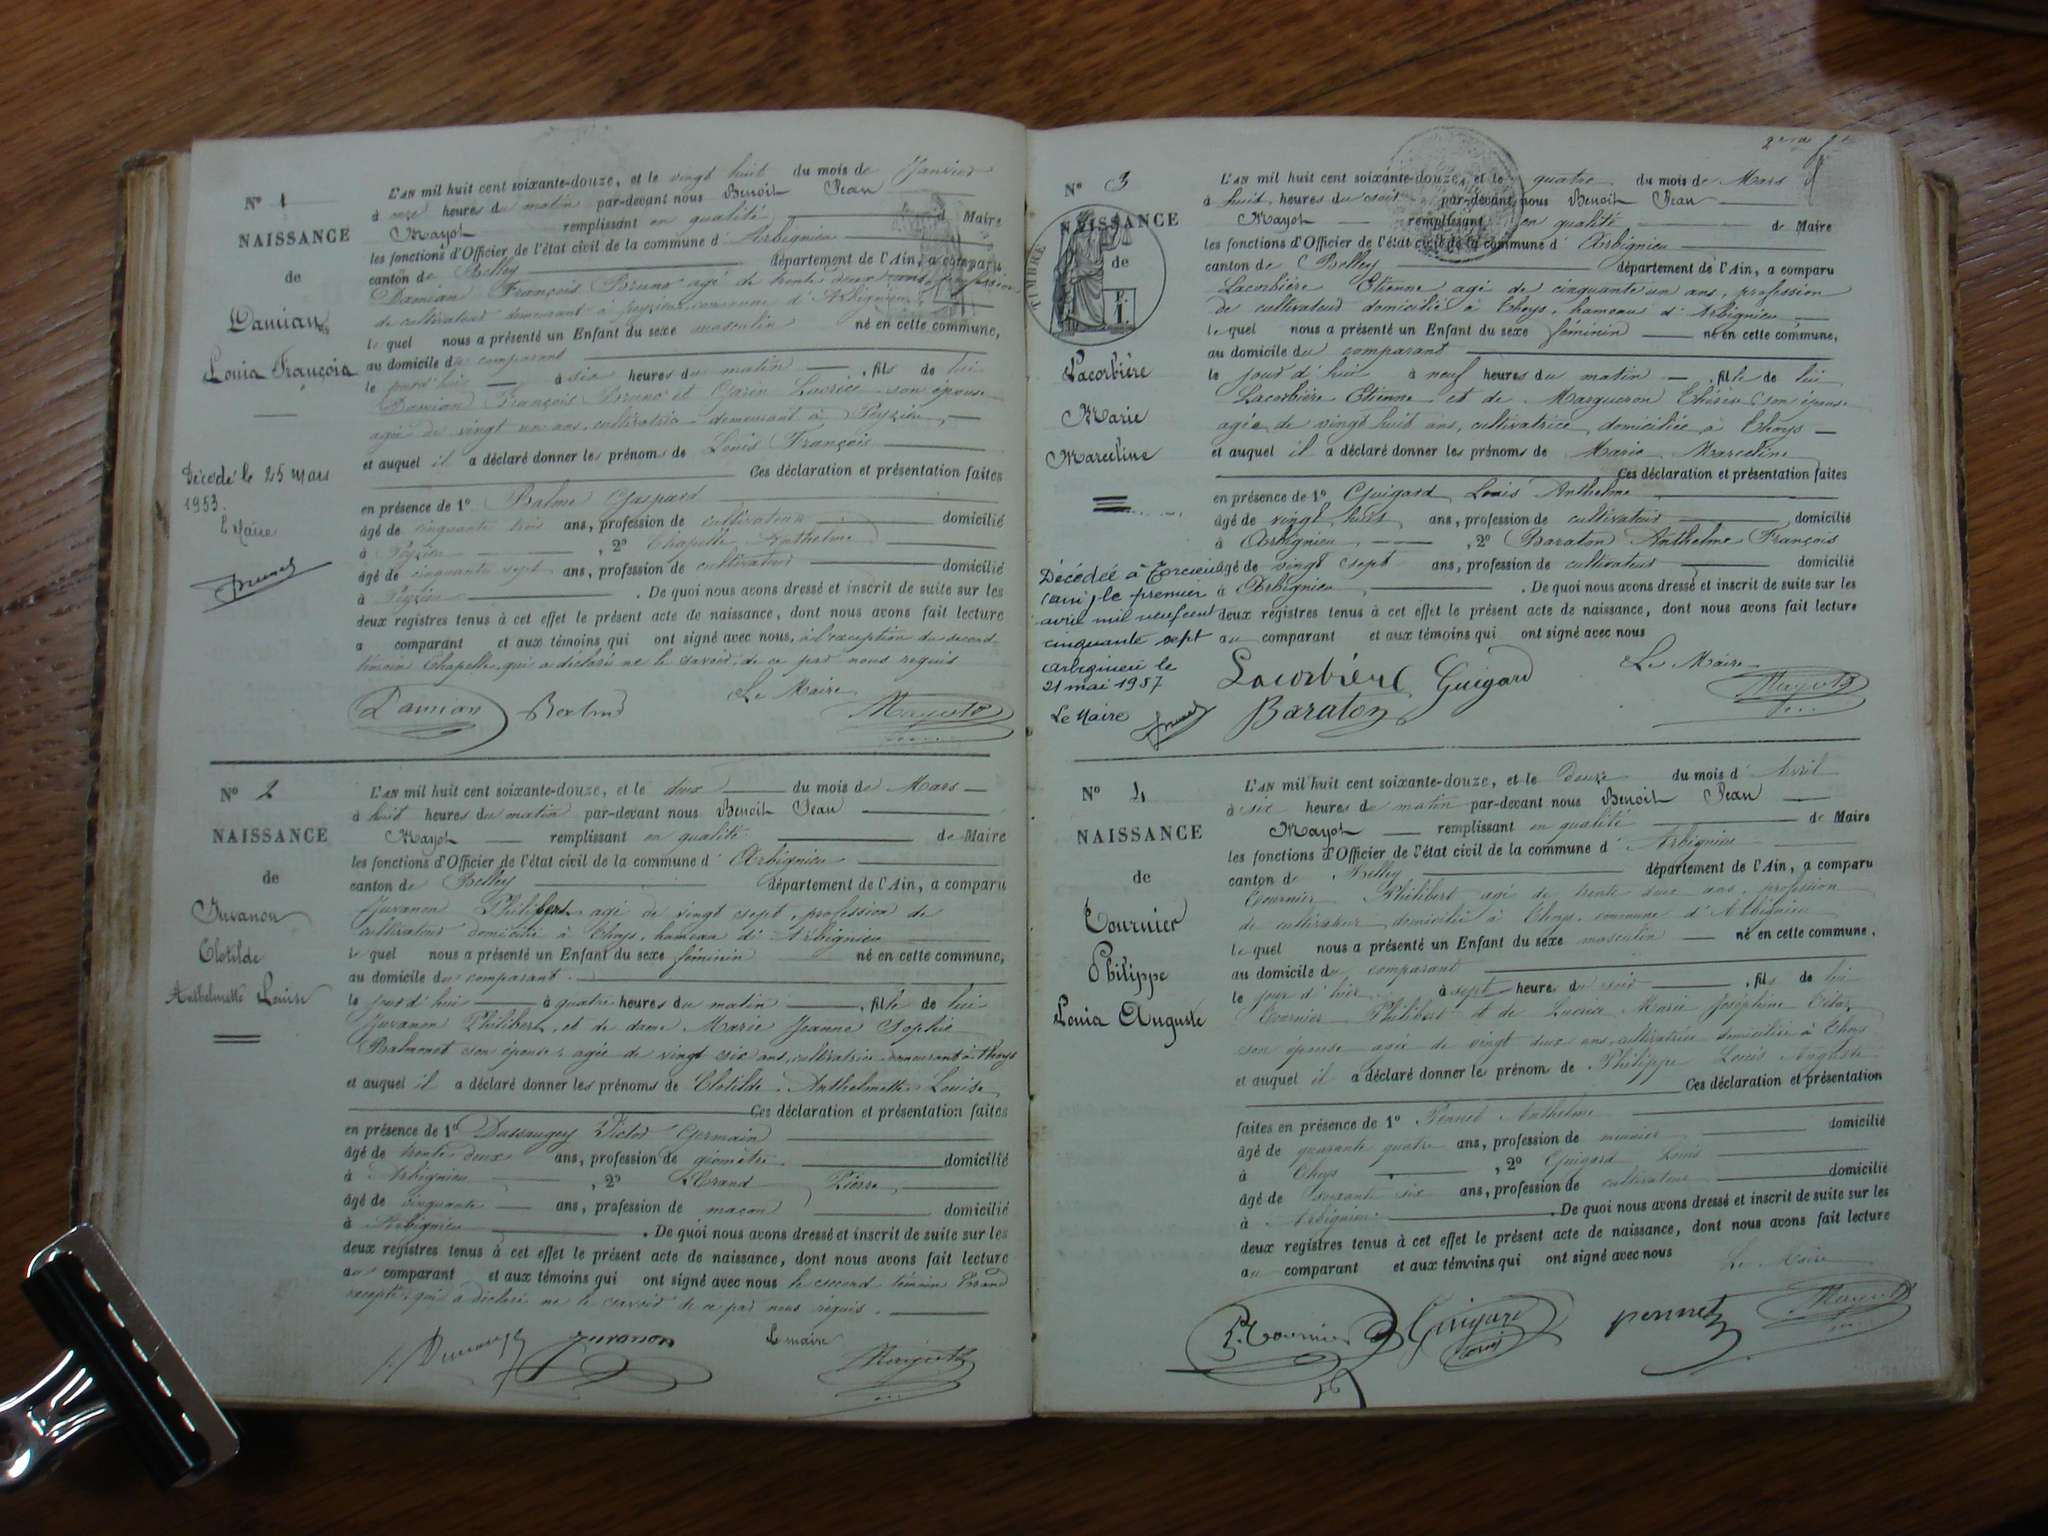 N° 1
NAISSANCE
de
Damian
Louis François
Décédé le 25 mars
1953.
L Maire
L'AN mil huit cent soixante-douze, et le vingt huit du mois de Janvier
à onze heures du matin par-devant nous Benoit Jean
Mayot remplissant en qualité d Maire
les fonctions d'Officier de l'état civil de la commune d' Arbignieu
canton de Belley département de l'Ain, a comparu
Damian François Bruno agé de trente deux ans, profession
de cultivateur demeurant à Peyzieu, commune d' Arbignieu
le quel nous a présenté un Enfant du sexe masculin né en cette commune,
au domicile du comparant
le jourd'hui à six heures du matin , fils de lui
Damian François Bruno et son épouse
agée de vingt un ans, cultivatrice demeurant à Peyzieu,
et auquel il a déclaré donner les prénoms de Louis François
Ces déclaration et présentation faites
en présence de 1° Balme Gaspard
âgé de cinquante trois ans, profession de cultivateur domicilié
à Peyzieu , 2° Chapelle Anthelme
âgé de cinquante sept ans, profession de cultivateur domicilié
à Peyzieu . De quoi nous avons dressé et inscrit de suite sur les
deux registres tenus à cet effet le présent acte de naissance, dont nous avons fait lecture
a comparant et aux témoins qui ont signé avec nous, à l'exception du second
témoin Chapelle, qui a déclaré ne le savoir, de ce par nous requis
Le Maire
Damian
N° 2
NAISSANCE
de
Juvanon
Clotilde
Anthelmette Louise
L'AN mil huit cent soixante-douze, et le deux du mois de Mars
à huit heures du matin par-devant nous Benoit Jean
Mayot remplissant en qualité de Maire
les fonctions d'Officier de l'état civil de la commune d' Arbignieu
canton de Belley département de l'Ain, a comparu
Juvanon Philibert agé de vingt sept, profession de
cultivateur domicilié à Thoys, hameau d' Arbignieu
le quel nous a présenté un Enfant du sexe féminin né en cette commune,
au domicile du comparant
le jour d'hui à quatre heures du matin , fille de lui
Juvanon Philibert, et de dame Marie Jeanne Sophie
Balmonet son épouse, agée de vingt six ans, cultivatrice demeurant à Thoys
et auquel il a déclaré donner les prénoms de Clotilde Anthelmette Louise
Ces déclaration et présentation faites
en présence de 1° Dussaugey Victor Germain
âgé de trente deux ans, profession de géomètre domicilié
à Arbignieu , 2° Brand Pierre
âgé de cinquante ans, profession de maçon domicilié
à Arbignieu . De quoi nous avons dressé et inscrit de suite sur les
deux registres tenus à cet effet le présent acte de naissance, dont nous avons fait lecture
au comparant et aux témoins qui ont signé avec nous le second témoin Brand
excepté, qui a déclaré ne le savoir de ce par nous requis.
Juvanon Le maire
2
N° 3
NAISSANCE
de
TIMBRE
Lacorbière
Marie
Marceline
Décédée à Torcieu
(ain) le premier
avril mil neuf cent
cinquante sept
Arbignieu le
21 mai 1957
Le Maire
L'AN mil huit cent soixante-douze, et le quatre du mois de Mars
à huit heures du soir par-devant nous Benoit Jean
Mayot remplissant en qualité de Maire
les fonctions d'Officier de l'état civil de la commune d' Arbignieu
canton de Belley département de l'Ain, a comparu
Lacorbière Etienne agé de cinquante un ans, profession
de cultivateur domicilié à Thoys, hameau d' Arbignieu
le quel nous a présenté un Enfant du sexe féminin né en cette commune,
au domicile du comparant
le jour d'hui à neuf heures du matin , fille de lui
Lacorbière Etienne et de Margueron Thérèse son épouse
agée de vingt huit ans, cultivatrice, domiciliée à Thoys
et auquel il a déclaré donner les prénoms de Marie Marceline
Ces déclaration et présentation faites
en présence de 1° Guigard Louis Anthelme
âgé de vingt huit ans, profession de cultivateur domicilié
à Arbignieu , 2° Baraton Anthelme François
âgé de vingt sept ans, profession de cultivateur domicilié
à Arbignieu . De quoi nous avons dressé et inscrit de suite sur les
deux registres tenus à cet effet le présent acte de naissance, dont nous avons fait lecture
au comparant et aux témoins qui ont signé avec nous
Le Maire
Lacorbière Guigard
Baraton
N° 4
NAISSANCE
de
Tournier
Philippe
Louis Auguste
L'AN mil huit cent soixante-douze, et le douze du mois d' Avril
à six heures de matin par-devant nous Benoit Jean
Mayot remplissant en qualité de Maire
les fonctions d'Officier de l'état civil de la commune d' Arbignieu
canton de Belley département de l'Ain, a comparu
Tournier Philibert agé de trente deux ans, profession
de cultivateur domicilié à Thoys, commune d' Arbignieu
le quel nous a présenté un Enfant du sexe masculin né en cette commune,
au domicile du comparant
le jour d'hier à sept heure du soir , fils de lui
Tournier Philibert et de Marie Joséphine
son épouse agée de vingt deux ans, cultivatrice domiciliée à Thoys
et auquel il a déclaré donner le prénom de Philippe Louis Auguste
Ces déclaration et présentation
faites en présence de 1° Pennet Anthelme
âgé de quarante quatre ans, profession de meunier domicilié
à Thoys , 2° Guigard Louis
âgé de soixante six ans, profession de cultivateur domicilié
à Arbignieu . De quoi nous avons dressé et inscrit de suite sur les
deux registres tenus à cet effet le présent acte de naissance, dont nous avons fait lecture
au comparant et aux témoins qui ont signé avec nous
Le Maire
Tournier Guigard pennet